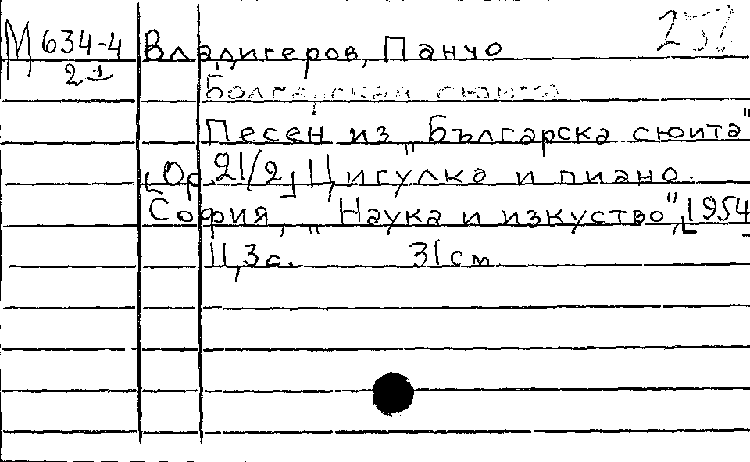 М 634-4 Владигеров, Панчо
2
Болгарская сюита
Песен из „Българска сюита"
[Ор. 21/2] Цигулка и пиано.
София, „Наука и изкуство", [1954
11, 3 с. 31 см